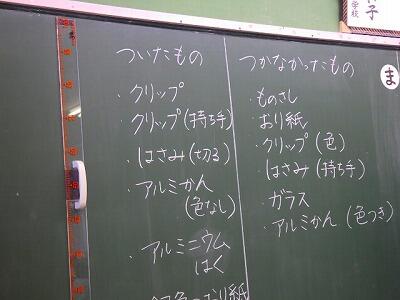 ついたもの
・クリップ
・クリップ(持ち手)
・はさみ(切る)
・アルミかん
(色なし)
・アルミニウム
はく
つかなかったもの
・ものさし
・おり紙
・クリップ(色)
・はさみ(持ち手)
・ガラス
・アルミかん(色つき)
ま
子
学校